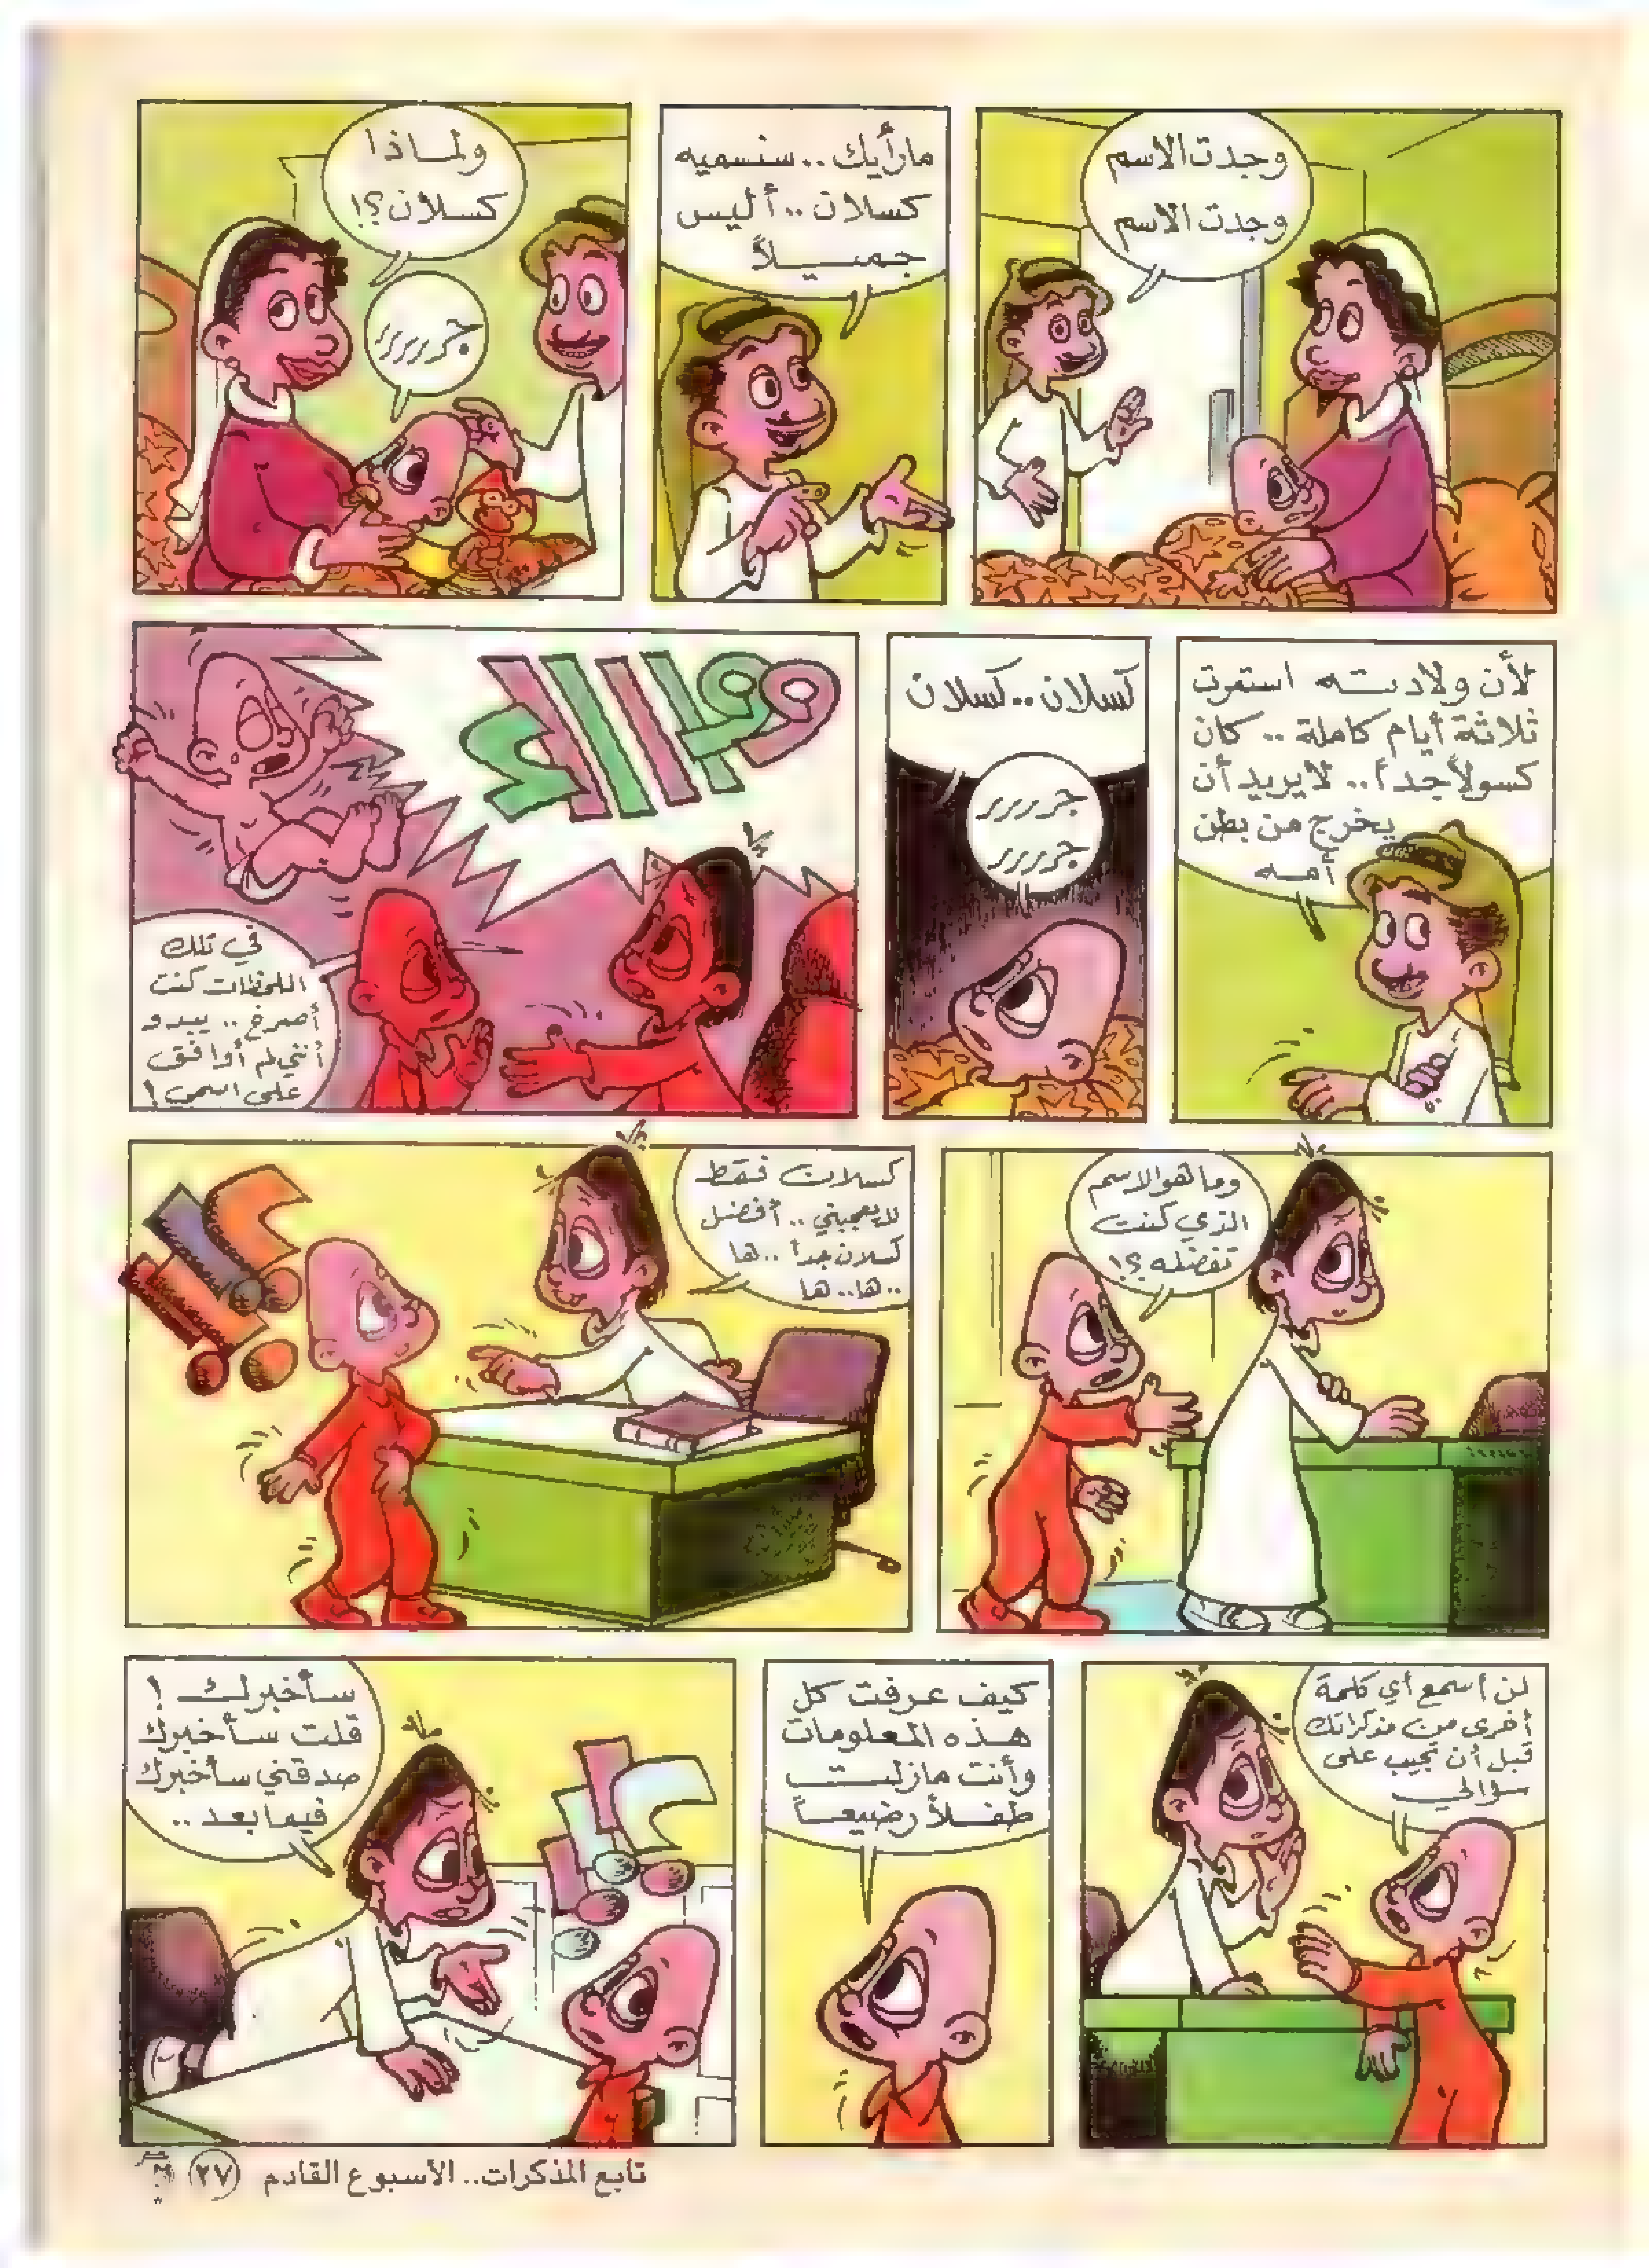 وجدت الاسم
وجدت الاسم
مارأيك.. سنسميه
كسلان.. أليس
جميلاً
ولماذا
كسلان؟!
جررررر
لأن ولادته استمرت
ثلاثة أيام كاملة.. كان
كسولاً جداً.. لايريد أن
يخرج من بطن
أمه
كسلان.. كسلان
جررررر
جررررر
في تلك
اللحظات كنت
أصرخ.. يبدو
أنني لم أوافق
على اسمي!
وما هو الاسم
الذي كنت
تفضله؟!
كسلان فقط
لايعجبني.. أفضل
كسلان جداً.. ها
..ها..ها
لن أسمع أي كلمة
أخرى من مذكراتك
قبل أن تجيب على
سؤالي
كيف عرفت كل
هذه المعلومات
وأنت مازلت
طفلاً رضيعاً
سأخبرك!
قلت سأخبرك
صدقني سأخبرك
فيما بعد..
تابع المذكرات.. الأسبوع القادم
٢٧